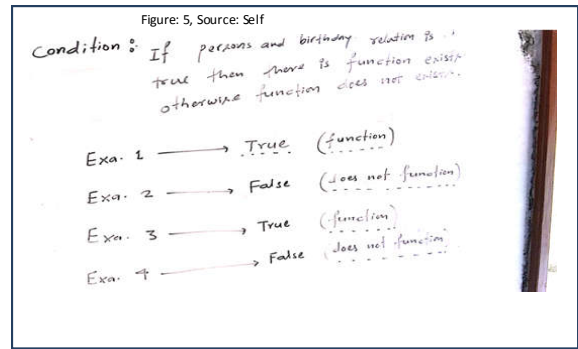 Figure: 5, Source: Self
Condition : If persons and birthday relation is
true then there is function exists
otherwise function does not exists.
Exa. 1 → True (function)
Exa. 2 → False (does not function)
Exa. 3 → True (function)
Exa. 4 → False (does not function)